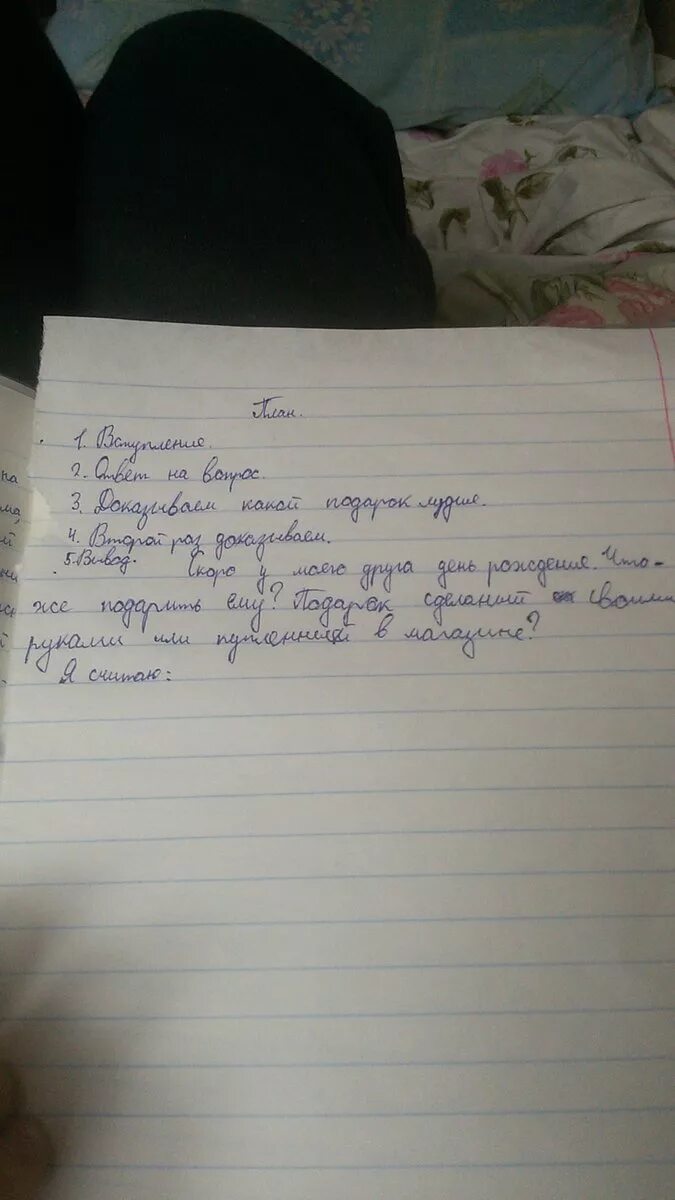 План.
1. Вступление.
2. Ответ на вопрос.
3. Доказываем какой подарок лудше.
4. Второй раз доказываем.
5. Вывод. Скоро у моего друга день рождение. Что-
же подарить ему? Подарок сделаний своими
руками или купленный в магазине?
Я считаю:
на
ма,
й